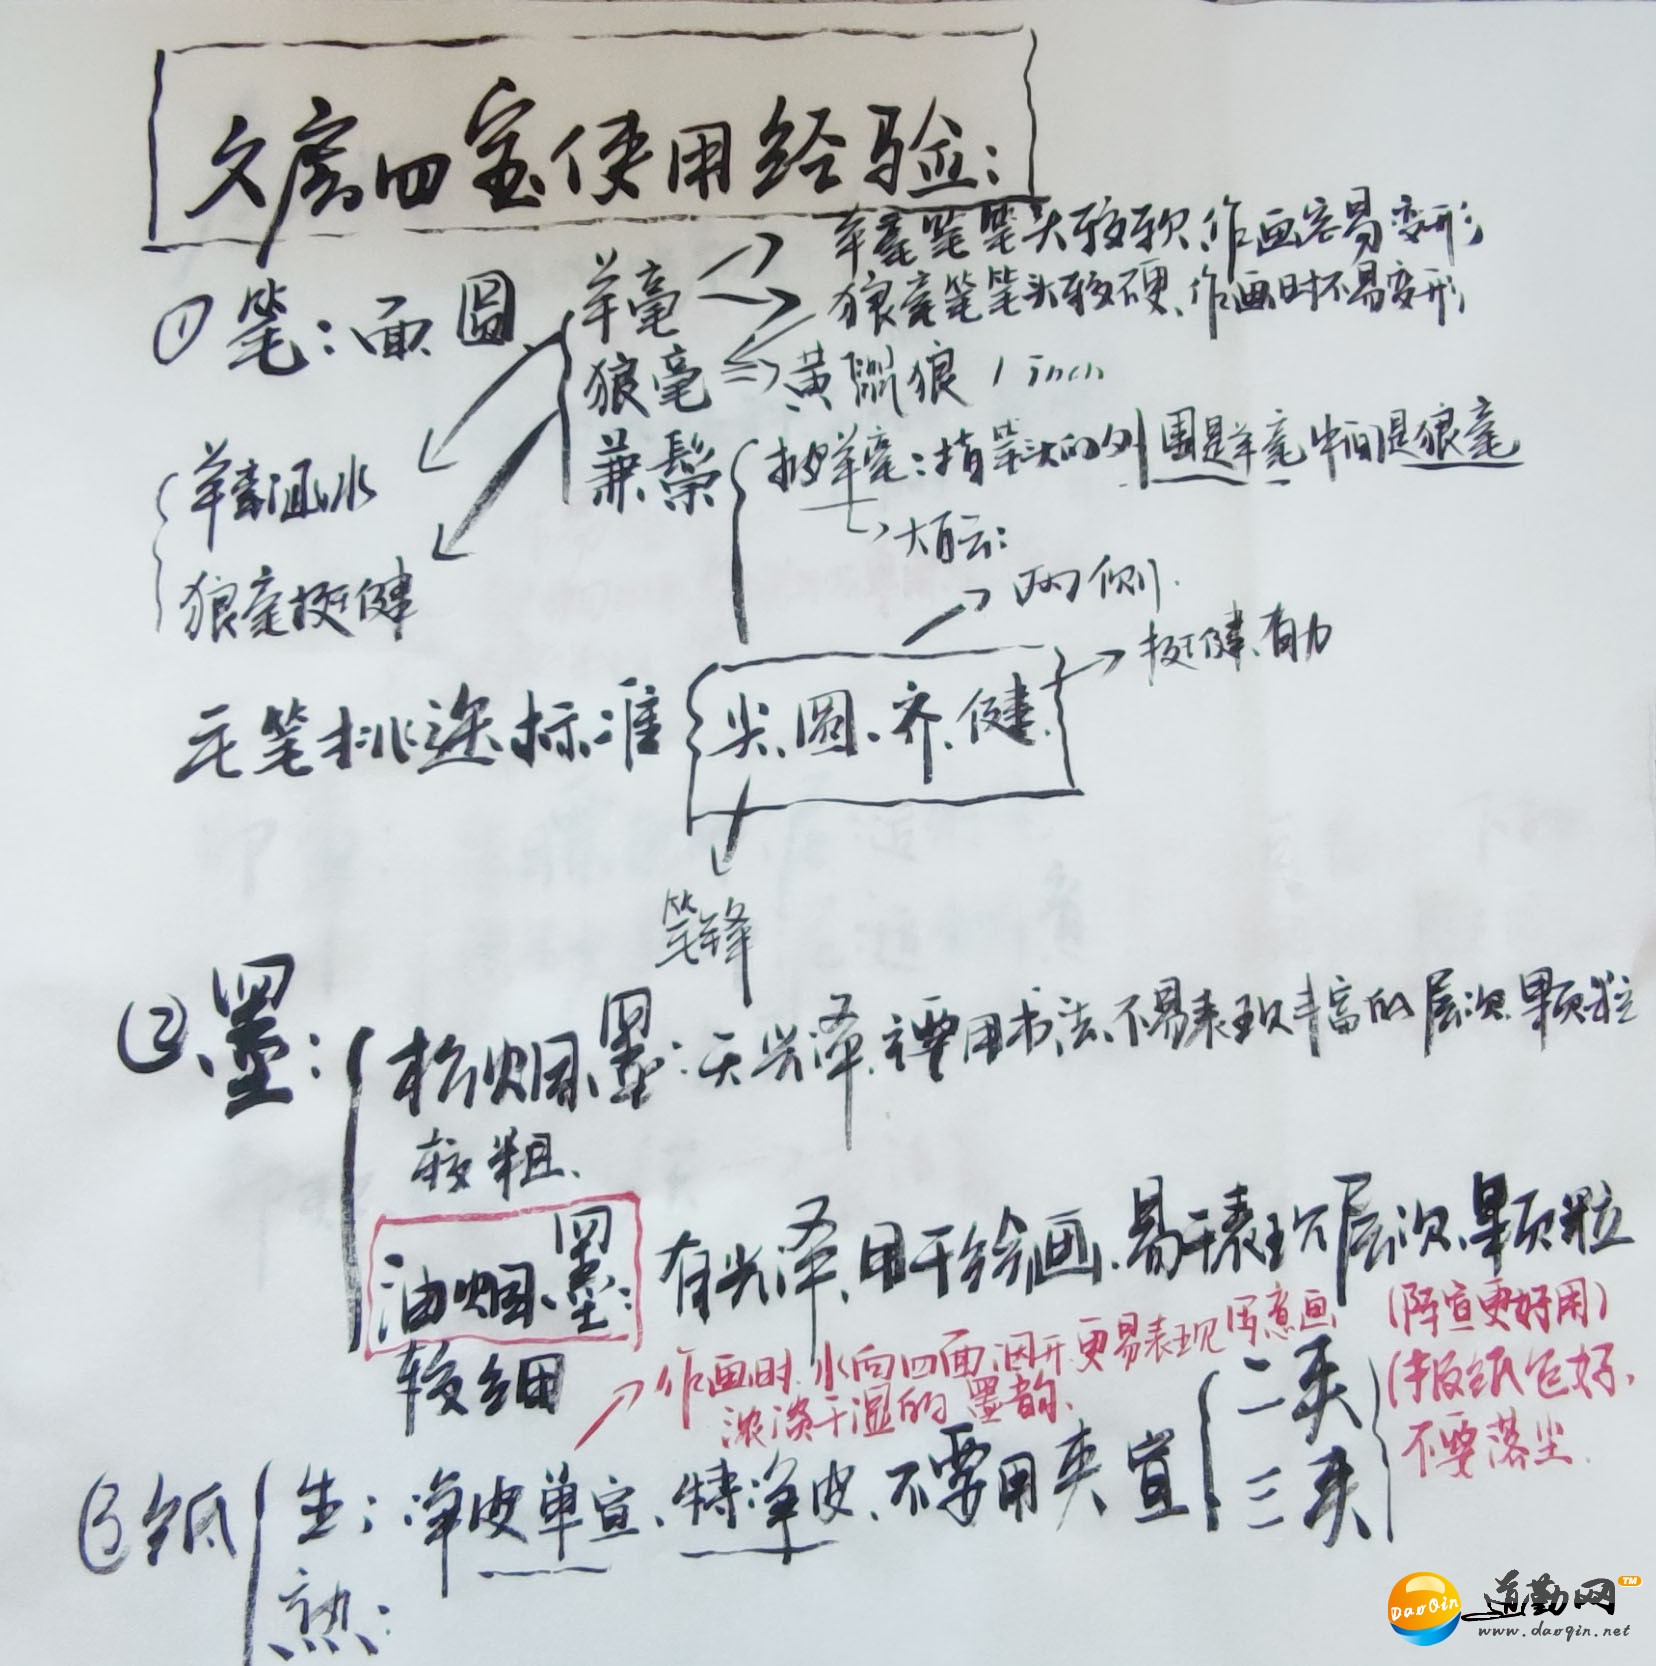 文房四宝使用经验:
羊毫笔笔头较软、作画容易变形
①笔:面圆 羊毫
狼毫笔笔头较硬、作画时不易变形
狼毫 黄鼠狼
兼鬃 披羊毫:指笔头的外围是羊毫中间是狼毫
羊毫涵水
大白云:
狼毫挺健
两侧.
挺健、有力
毛笔挑选标准 尖、圆、齐、健.
笔锋
②墨:
松烟墨:无光泽、主要用书法、不易表现丰富的层次、颗粒
较粗、
油烟墨: 有光泽、用于绘画、易于表现层次、颗粒
较细
(陈宣更好用)
作画时、水向四面洇开、更易表现写意画
浓淡干湿的墨韵、
二夹
(报纸包好、
不要落尘.
③纸 生:净皮单宣、特净皮、不要用夹宣
三夹
熟:
DaoQin 道勤网 TM
www.daoqin.net